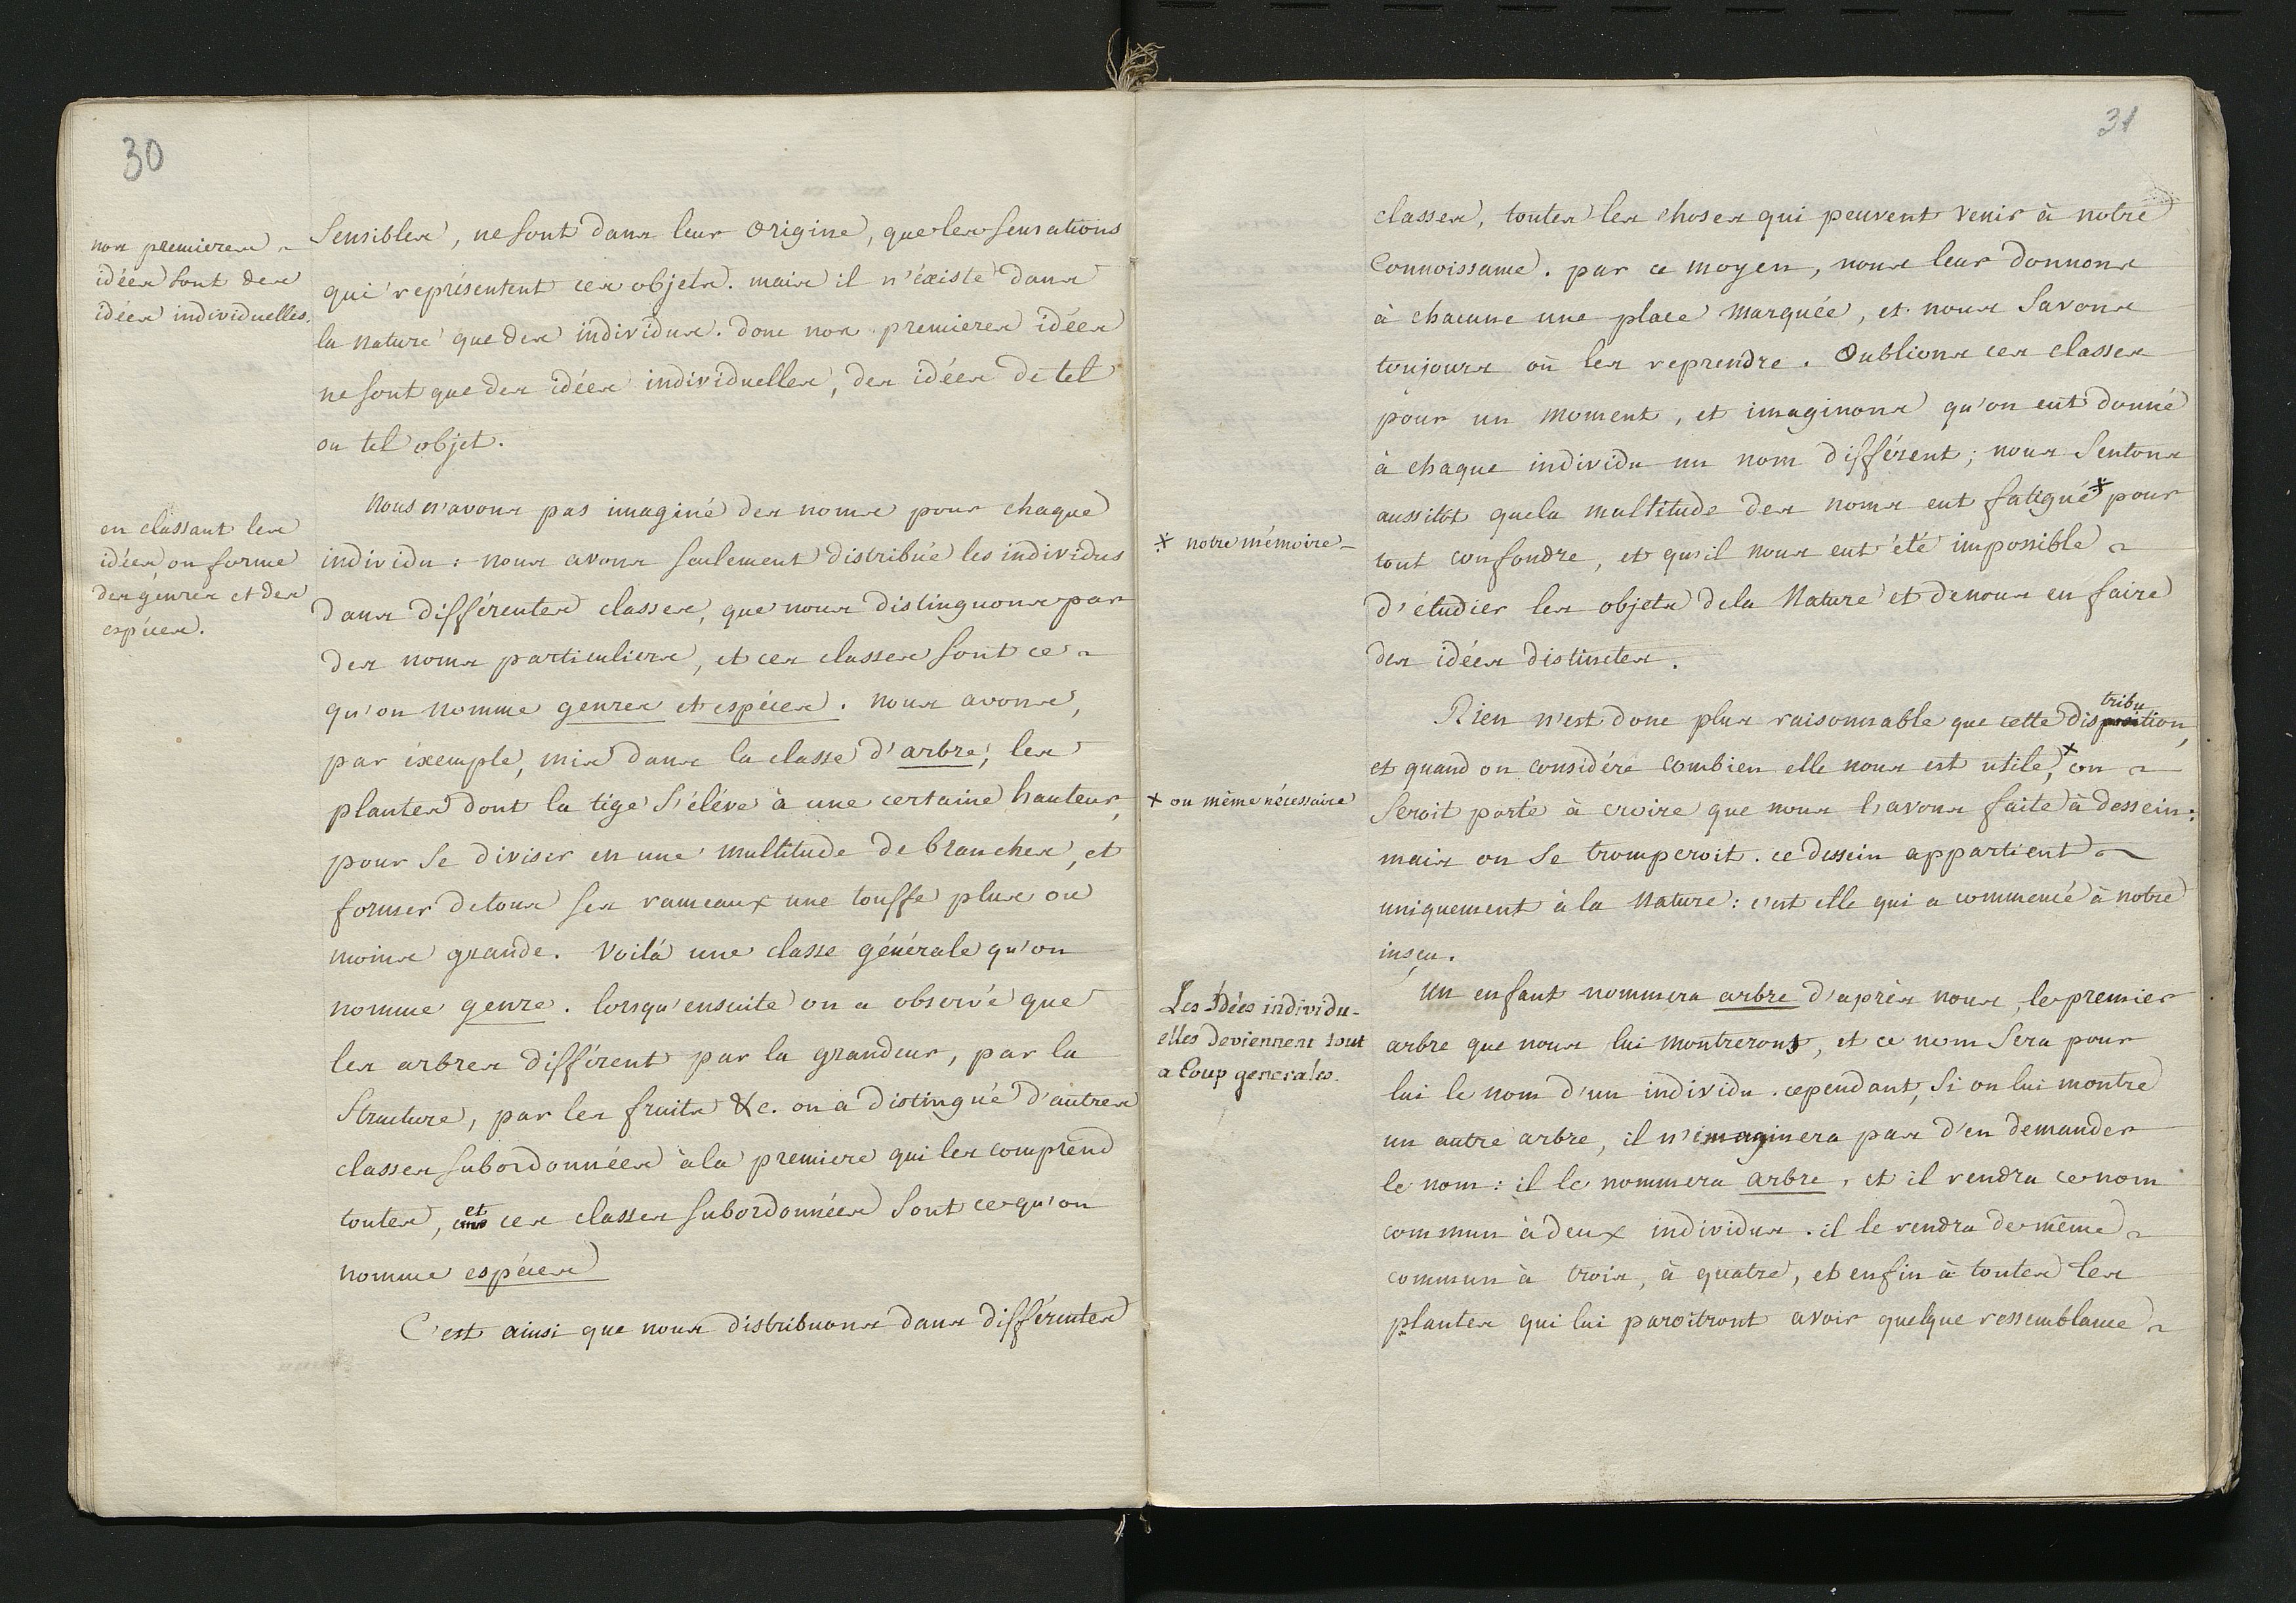 30
nos premieres
idées sont des
idées individuelles.
Sensibles, ne sont dans leur Origine, que les sensations
qui représentent ces objets. mais il n'existe dans
la nature que des individus. donc nos premieres idées
ne sont que des idées individuelles, des idées de tel
ou tel objet.
en classant les
idées, on forme
des genres et des
espéces.
Nous n'avons pas imaginé des noms pour chaque
individu : nous avons seulement distribué les individus
dans différentes classes, que nous distinguons par
des noms particuliers, et ces classes sont ce
qu'on nomme genres et espéces. Nous avons,
par exemple, mis dans la classe d'arbre, les
plantes dont la tige S'éléve à une certaine hauteur,
pour Se diviser en une multitude de branches, et
former de tous ses rameaux une touffe plus ou
moins grande. Voilà une classe générale qu'on
nomme genre. lorsqu'ensuite on a observé que
les arbres différent par la grandeur, par la
Structure, par les fruits &c. on a distingué d'autres
classes subordonnées à la premiere qui les comprend
toutes, et ces classes subordonnées sont ce qu'on
nomme espéces
C'est ainsi que nous distribuons dans différentes
31
classes, toutes les choses qui peuvent venir à notre
Connoissance. par ce moyen, nous leur donnons
à chacune une place marquée, et nous Savons
toujours où les reprendre. Oublions ces classes
pour un moment, et imaginons qu'on eut donné
à chaque individu un nom différent; nous Sentons
aussitôt que la multitude des noms eut fatigué * pour
* notre mémoire
tout confondre, et qu'il nous eut été impossible
d'étudier les objets de la Nature et de nous en faire
des idées distinctes.
Rien n'est donc plus raisonnable que cette disposition, tribu
et quand on considére combien elle nous est utile, x on
x ou même nécessaire
Seroit porté à croire que nous l'avons faite à dessein :
mais on Se tromperoit. ce dessein appartient
uniquement à la Nature : c'est elle qui a commencé à notre
insçu.
Les Idées individu-
elles deviennent tout
a Coup generales.
Un enfant nommera arbre d'après nous, le premier
arbre que nous lui montrerons, et ce nom Sera pour
lui le nom d'un individu. cependant, Si on lui montre
un autre arbre, il n'imaginera pas d'en demander
le nom : il le nommera arbre, et il rendra ce nom
commun à deux individus. il le rendra de même
commun à trois, à quatre, et enfin à toutes les
plantes qui lui paroîtront avoir quelque ressemblance